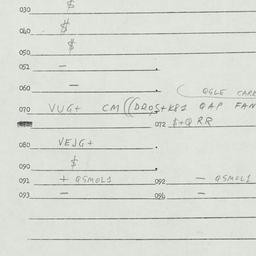 030 $
040 $
050 $
051 –
060 –
QGLE CARE
070 VUG+ CM ((DDQS+K81 QAP FAN
072 $+Q RR
080 VEJG+
090 $
091 + QSMOL1 092 – QSMOL1
093 – 096 –